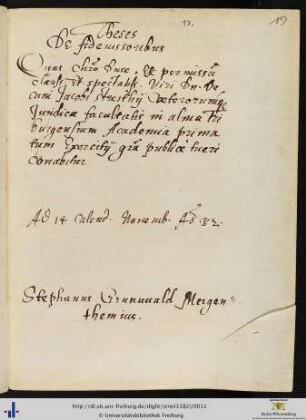 17.
19
Theses
De fidejussoribus
Quas Chro Duce, Et permissu
clariss. et spectabilis. Viri Dn. De
cani Jacobi Streithij Cæterorumque
Juridicæ facultatis in alma Fri
burgensium Academia prima
tum Exercitij grã publicè tueri
conabitur
Ad 14 Calend. Novemb. Aõ. 82.
Stephanus Grunwald Mergen
themius.
http://dl.ub.uni-freiburg.de/diglit/streit1582/0011
© Universitätsbibliothek Freiburg
Baden-Württemberg